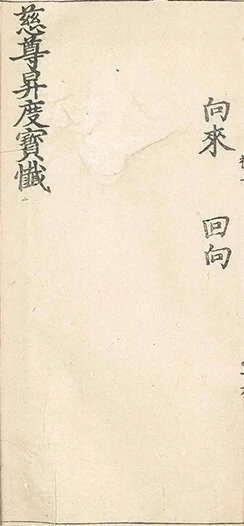 向來　回向
慈尊昇度寳懺